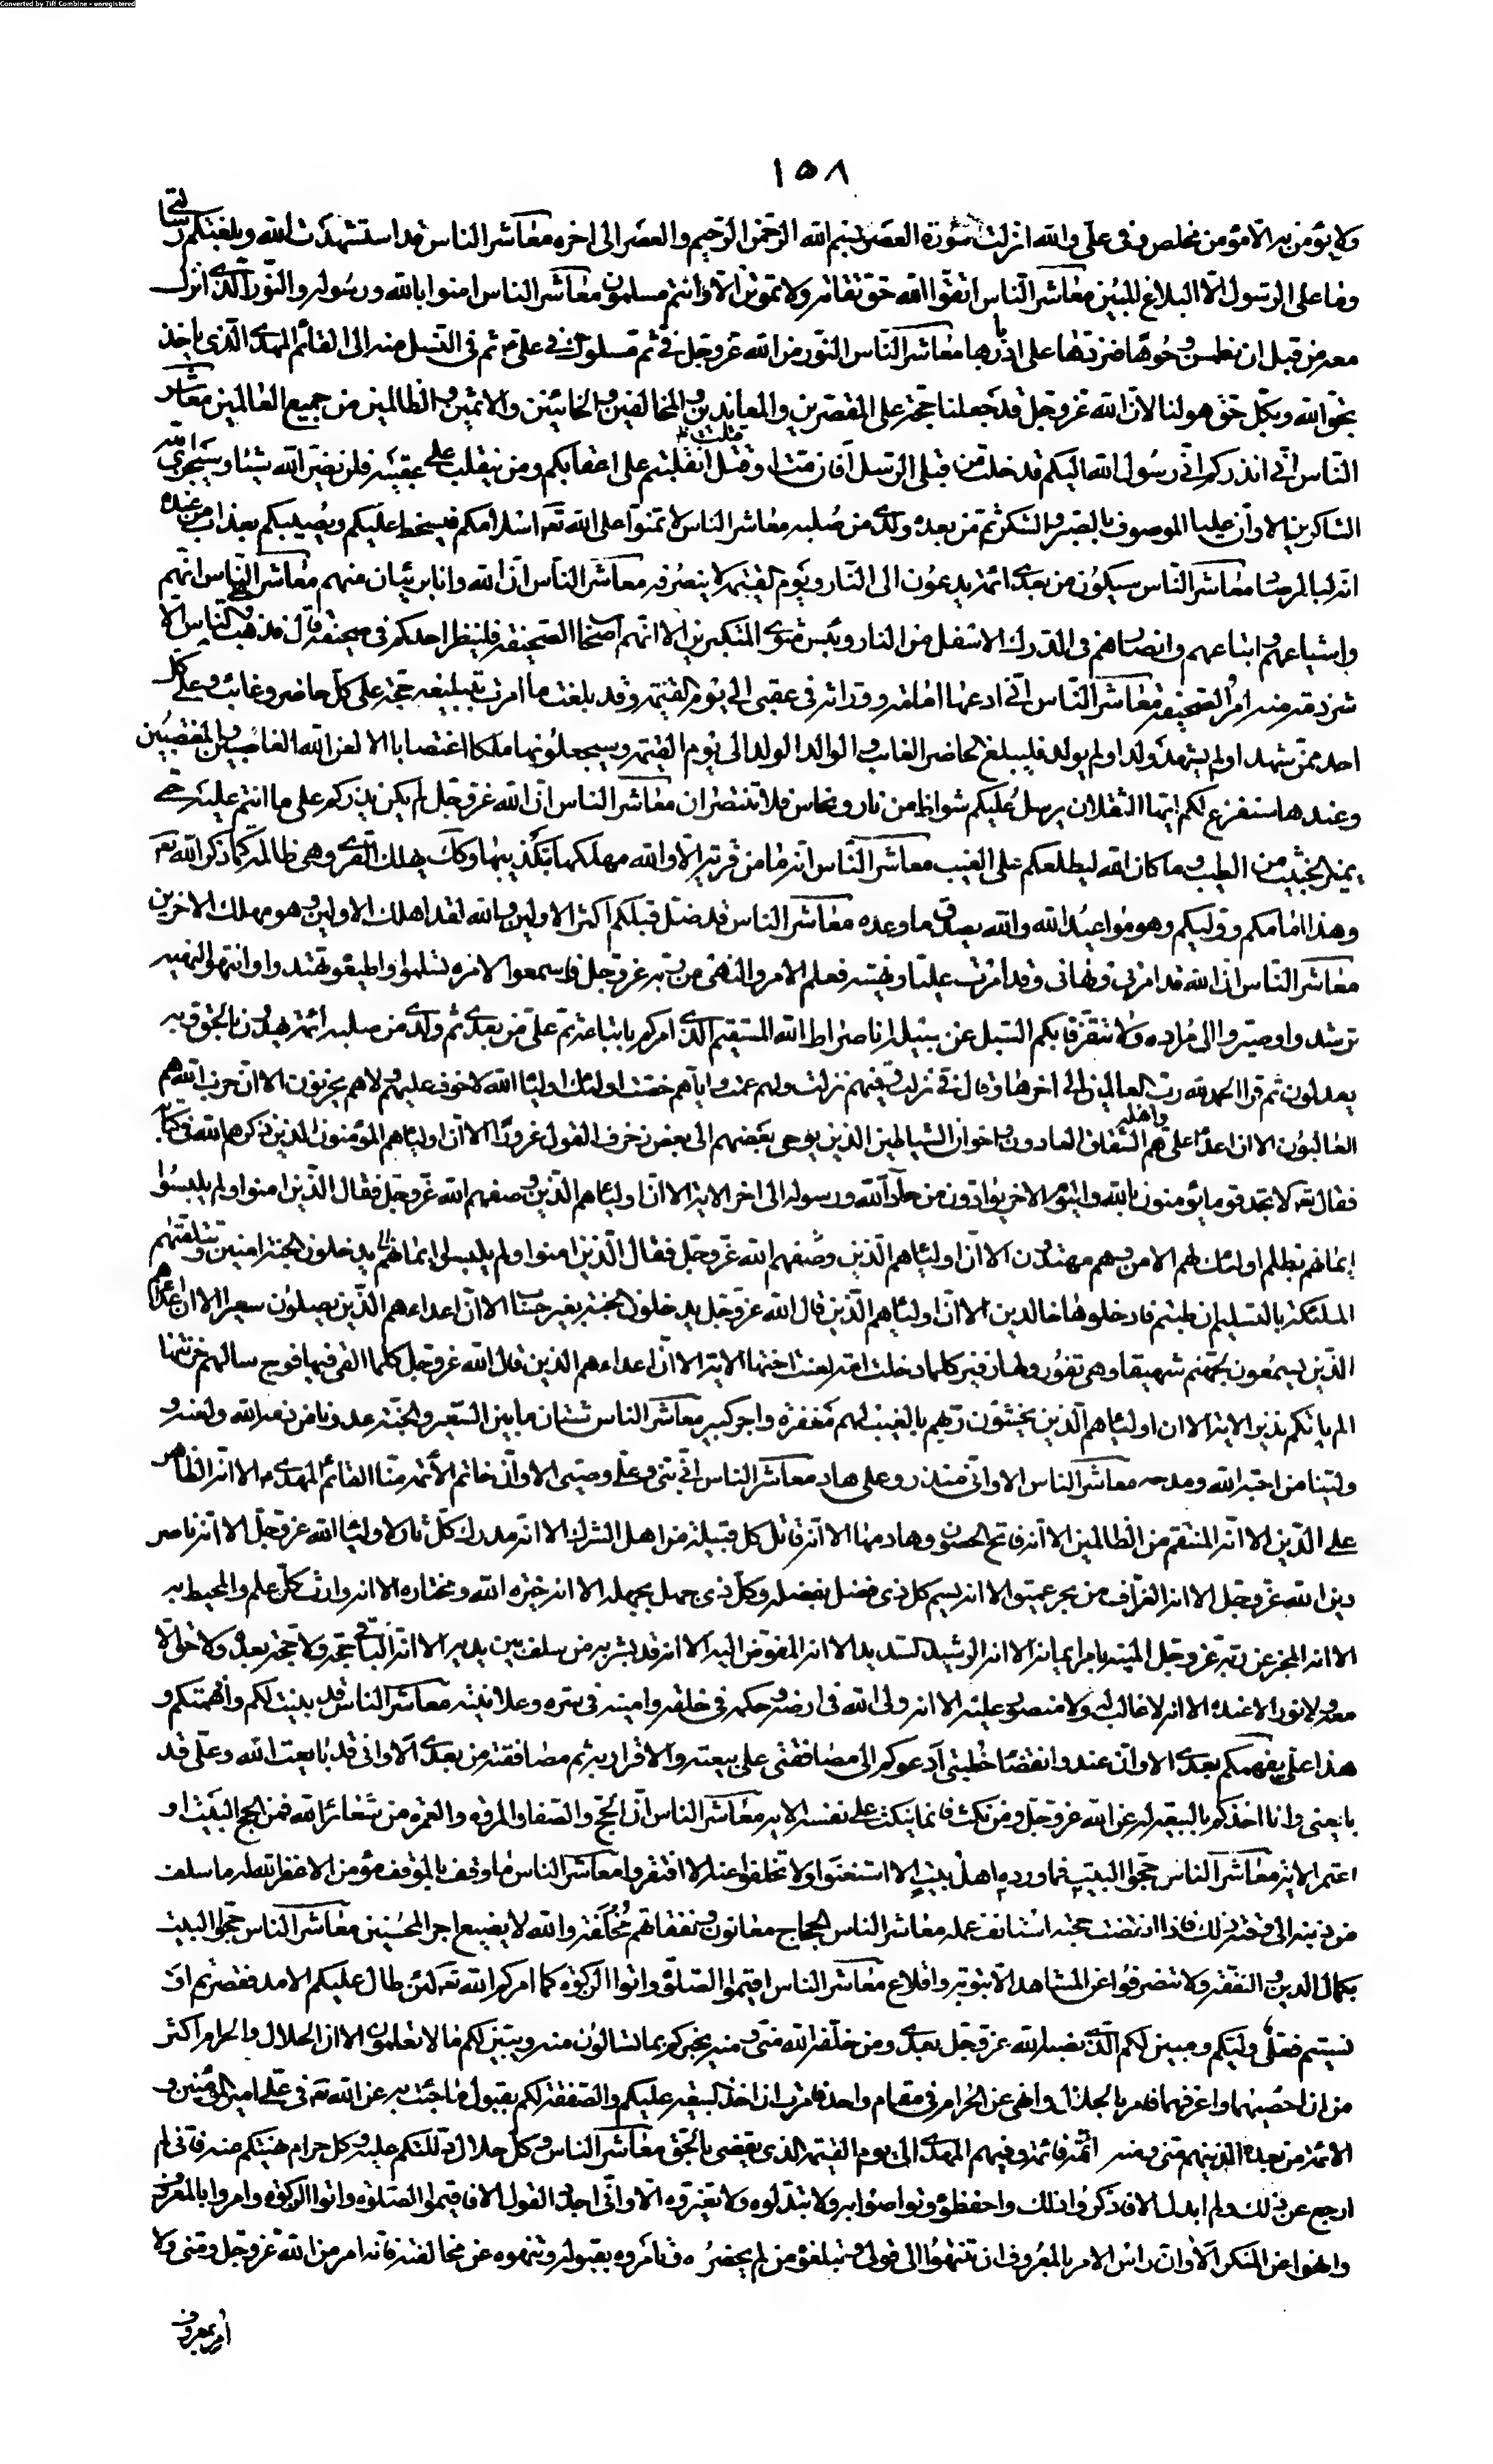 Converted by Tiff Combine - unregistered
١٥٨
ولا يؤمن به الا مؤمن مخلص وفى على والله انزلت سورة العصر بسم الله الرحمن الرحيم والعصر الى اخره معاشر الناس قد استشهدت الله وبلغتكم رسالتى
وما على الرسول الا البلاغ المبين معاشر الناس اتقوا الله حق تقاته ولا تموتن الا وانتم مسلمون معاشر الناس امنوا بالله ورسوله والنور الذى انزل
معه من قبل ان نطمس وجوها فنردها على ادبارها معاشر الناس النور من الله عز وجل فى ثم مسلوك فى على ثم فى النسل منه الى القائم المهدى الذى ياخذ
بحق الله وبكل حق هو لنا لان الله عز وجل قد جعلنا حجة على المقصرين والمعاندين والمخالفين والخائنين والاثمين والظالمين من جميع العالمين معاشر
الناس انى انذركم انى رسول الله اليكم قد خلت من قبلى الرسل افان مت او قتلت انقلبتم على اعقابكم ومن ينقلب على عقبيه فلن يضر الله شيئا وسيجزى الله
الشاكرين الا وان عليا الموصوف بالصبر والشكر ثم من بعده ولدى من صلبه معاشر الناس لا تمنوا على الله تعالى اسلامكم فيسخط عليكم ويصيبكم بعذاب من عنده
انه لبالمرصاد معاشر الناس سيكون من بعدى ائمة يدعون الى النار ويوم القيمة لا ينصرون معاشر الناس ان الله وانا بريئان منهم معاشر الناس انهم
واشياعهم واتباعهم وانصارهم فى الدرك الاسفل من النار وبئس مثوى المتكبرين الا انهم اصحاب الصحيفة فلينظر احدكم فى صحيفته قال فذهب على الناس الا
شرذمة منهم امر الصحيفة معاشر الناس انى ادعها امامة ووراثة فى عقبى الى يوم القيمة وقد بلغت ما امرت بتبليغه حجة على كل حاضر وغائب وعلى كل
احد ممن شهد او لم يشهد ولد او لم يولد فليبلغ الحاضر الغائب والوالد الولد الى يوم القيمة وسيجعلونها ملكا اغتصابا الا لعن الله الغاصبين والمغتصبين
وعندها سنفرغ لكم ايها الثقلان يرسل عليكما شواظ من نار ونحاس فلا تنتصران معاشر الناس ان الله عز وجل لم يكن يذركم على ما انتم عليه حتى
يميز الخبيث من الطيب وما كان الله ليطلعكم على الغيب معاشر الناس انه ما من قرية الا والله مهلكها بتكذيبها وكذلك يهلك القرى وهى ظالمة كما ذكر الله تعالى
وهذا امامكم ووليكم وهو مواعيد الله والله يصدق ما وعده معاشر الناس قد ضل قبلكم اكثر الاولين والله لقد اهلك الاولين وهو مهلك الاخرين
معاشر الناس ان الله قد امرنى ونهانى وقد امرت عليا ونهيته فعلم الامر والنهى من ربه عز وجل فاسمعوا لامره تسلموا واطيعوه تهتدوا وانتهوا لنهيه
ترشدوا وصيروا الى مراده ولا تتفرق بكم السبل عن سبيله انا صراط الله المستقيم الذى امركم باتباعه ثم على من بعدى ثم ولدى من صلبه ائمة يهدون بالحق وبه
يعدلون ثم قرا الحمد لله رب العالمين الى اخرها وقال فى نزلت وفيهم نزلت ولهم عمت واياهم خصت اولئك اولياء الله لا خوف عليهم ولا هم يحزنون الا ان حزب الله هم
الغالبون الا ان اعداء على هم واهله الشقاق العادون واخوان الشياطين الذين يوحى بعضهم الى بعض زخرف القول غرورا الا ان اولياءهم المؤمنون الذين ذكرهم الله فى كتابه
فقال تعالى لا تجد قوما يؤمنون بالله واليوم الاخر يوادون من حاد الله ورسوله الى اخر الاية الا ان اولياءهم الذين وصفهم الله عز وجل فقال الذين امنوا ولم يلبسوا
ايمانهم بظلم اولئك لهم الامن وهم مهتدون الا ان اولياءهم الذين وصفهم الله عز وجل فقال الذين امنوا ولم يلبسوا ايمانهم يدخلون الجنة امنين وتتلقيهم
الملئكة بالتسليم ان طبتم فادخلوها خالدين الا ان اولياءهم الذين قال الله عز وجل يدخلون الجنة بغير حساب الا ان اعداءهم الذين يصلون سعيرا الا ان اعداءهم
الذين يسمعون لجهنم شهيقا وهى تفور ولها زفير كلما دخلت امة لعنت اختها الاية الا ان اعداءهم الذين قال الله عز وجل كلما القى فيها فوج سالهم خزنتها
الم ياتكم نذير الاية الا ان اولياءهم الذين يخشون ربهم بالغيب لهم مغفرة واجر كبير معاشر الناس شتان ما بين السعير والجنة عدونا من ذمه الله ولعنه و
ولينا من احبه الله ومدحه معاشر الناس الا وانى منذر وعلى هاد معاشر الناس انى نبى وعلى وصيى الا وان خاتم الأئمة منا القائم المهدى الا انه الظاهر
على الدين الا انه المنتقم من الظالمين الا انه فاتح الحصون وهادمها الا انه قاتل كل قبيلة من اهل الشرك الا انه مدرك كل ثار لاولياء الله عز وجل الا انه ناصر
دين الله عز وجل الا انه الغراف من بحر عميق الا انه يسم كل ذى فضل بفضله وكل ذى جهل بجهله الا انه خيرة الله ومختاره الا انه وارث كل علم والمحيط به
الا انه المخبر عن ربه عز وجل المنبه بامر ايمانه الا انه الرشيد السديد الا انه المفوض اليه الا انه قد بشر به من سلف بين يديه الا انه الباقى حجة ولا حجة بعده ولا حق الا
معه ولا نور الا عنده الا انه لا غالب له ولا منصور عليه الا انه ولى الله فى ارضه وحكمه فى خلقه وامينه فى سره وعلانيته معاشر الناس قد بينت لكم وافهمتكم و
هذا على يفهمكم بعدى الا وان عند انقضاء خطبتى ادعوكم الى مصافقتى على بيعته والاقرار به ثم مصافقته من بعدى الا وانى قد بايعت الله وعلى قد
بايعنى وانا اخذكم بالبيعة له عن الله عز وجل ومن نكث فانما ينكث على نفسه الاية معاشر الناس ان الحج والصفا والمروة والعمرة من شعائر الله فمن حج البيت او
اعتمر الاية معاشر الناس حجوا البيت فما ورده اهل بيت الا استغنوا ولا تخلفوا عنه الا افتقروا معاشر الناس ما وقف بالموقف مؤمن الا غفر الله له ما سلف
من ذنبه الى وقته ذلك فاذا انقضت حجته استانف عمله معاشر الناس الحجاج معانون ونفقاتهم مخلفة والله لا يضيع اجر المحسنين معاشر الناس حجوا البيت
بكمال الدين والتفقه ولا تنصرفوا عن المشاهد الا بتوبة واقلاع معاشر الناس اقيموا الصلوة واتوا الزكوة كما امركم الله تعالى لئن طال عليكم الامد فقصرتم او
نسيتم فعلى وليكم ومبين لكم الذى نصبه الله عز وجل بعدى ومن خلفه الله منى ومنه يخبركم بما تسالون منه ويبين لكم ما لا تعلمون الا ان الحلال والحرام اكثر
من ان احصيهما واعرفهما فامر بالحلال وانهى عن الحرام فى مقام واحد فامرت ان اخذ البيعة عليكم والصفقة لكم بقبول ما جئت به عن الله تعالى فى على امير المؤمنين و
الائمة من بعده الذين هم منى ومنه ائمة قائمة وفيهم المهدى الى يوم القيمة الذى يقضى بالحق معاشر الناس وكل حلال دللتكم عليه وكل حرام نهيتكم عنه فانى لم
ارجع عن ذلك ولم ابدل الا فاذكروا ذلك واحفظوه وتواصوا به ولا تبدلوه ولا تغيروه الا وانى اجدد القول الا فاقيموا الصلوة واتوا الزكوة وامروا بالمعروف
وانهوا عن المنكر الا وان راس الامر بالمعروف ان تنتهوا الى قولى وتبلغوه من لم يحضره وتامروه بقبوله وتنهوه عن مخالفته فانه امر من الله عز وجل ومنى ولا
امر بمعروف